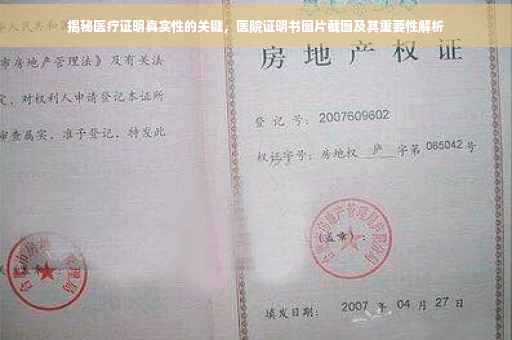 揭秘医疗证明真实性的关键，医院证明书图片截图及其重要性解析
华人民共和国
市房地产管理法》及有关法
定，对权利人申请登记本证所
审查属实，准予登记，特发此
房地产权
登记号：2007609602
权证字号：房地权 庐 字第 065042 号
（盖章）：
填发日期： 2007 年 04 月 27 日